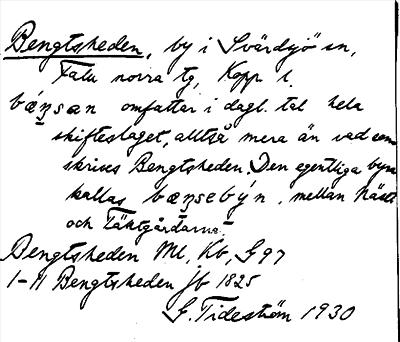 Bengtsheden, by i Svärdsjö sn,
Falu norra tg, Kopp l.
bǽn̥san omfattar i dagl. tal hela
skifteslaget, alltså mera än vad som
skrives Bengtsheden. Den egentliga byn
kallas bæn̥sebýn, mellan Näset
och Täktgårdarna.
Bengtsheden Ml, Kb, G 97
1-11 Bengtsheden jb 1825
G. Tideström 1930